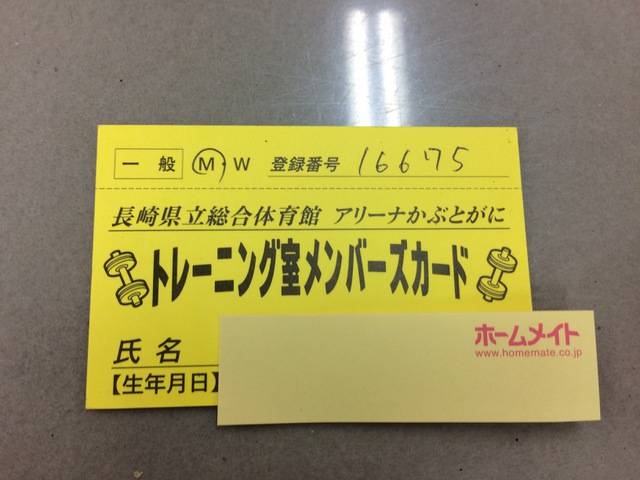 一般 M・W 登録番号 16675
長崎県立総合体育館 アリーナかぶとがに
トレーニング室メンバーズカード
氏名
【生年月日】
ホームメイト
www.homemate.co.jp